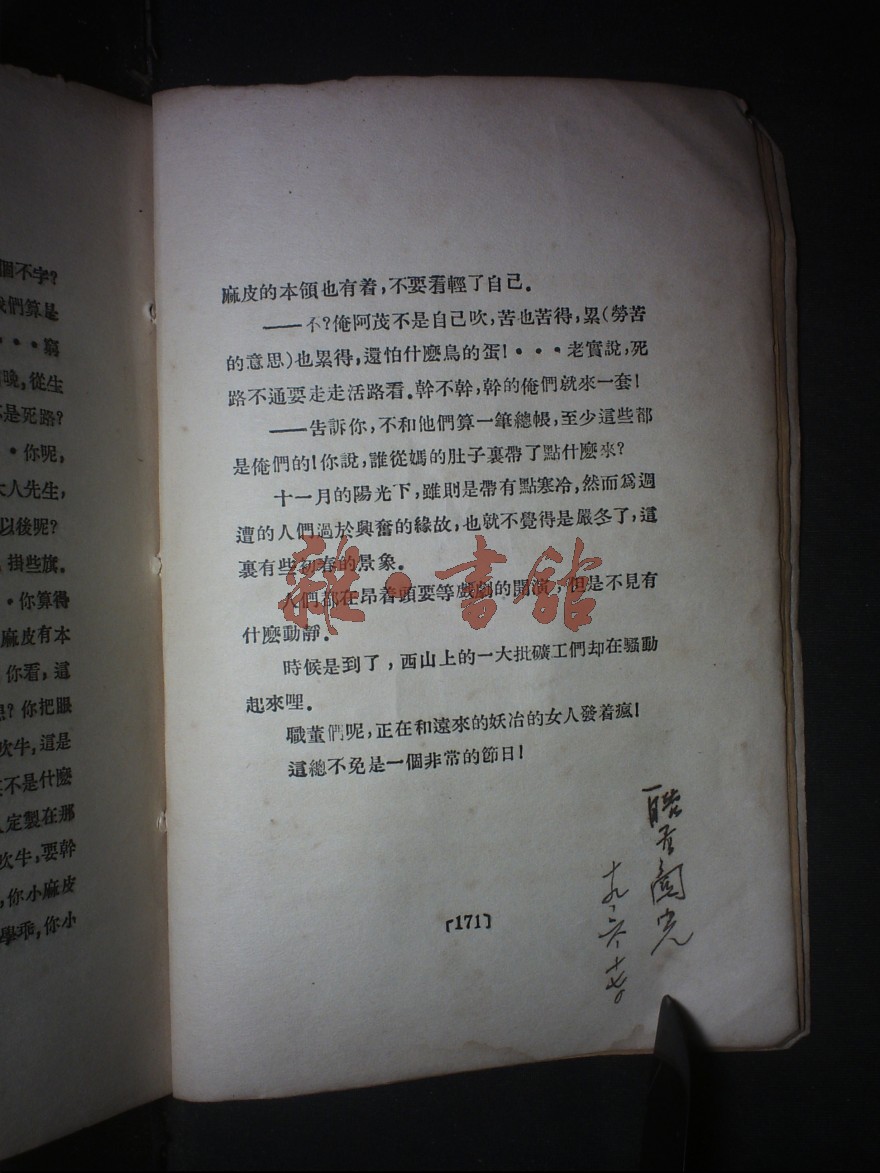 個不字?
我們算是
・・・窮
晚,從生
是死路?
・你呢,
大人先生,
以後呢?
掛些旗。
・你算得
麻皮有本
你看,這
想?你把眼
吹牛,這是
不是什麽
定製在那
吹牛,要幹
,你小麻皮
學乖,你小
麻皮的本領也有着,不要看輕了自己。
——不?俺阿茂不是自己吹,苦也苦得,累(勞苦
的意思)也累得,還怕什麽鳥的蛋!・・・老實說,死
路不通要走走活路看。幹不幹,幹的俺們就來一套!
——告訴你,不和他們算一筆總帳,至少這些都
是俺們的!你說,誰從媽的肚子裏帶了點什麽來?
十一月的陽光下,雖則是帶有點寒冷,然而爲週
遭的人們過於興奮的緣故,也就不覺得是嚴冬了,這
裏有些初春的景象。
人們都在昂着頭要等戲劇的開演,但是不見有
什麽動靜。
時候是到了,西山上的一大批礦工們却在騷動
起來哩。
職董們呢,正在和遠來的妖冶的女人發着瘋!
這總不免是一個非常的節日!
「171」
十九、六、十七。
雜・書館